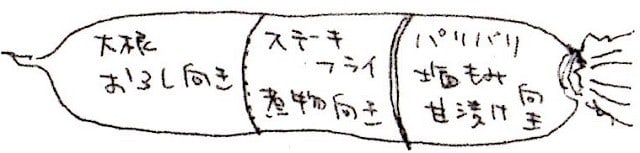 大根
おろし向き
ステーキ
フライ
煮物向き
パリパリ
塩もみ
甘漬け向き